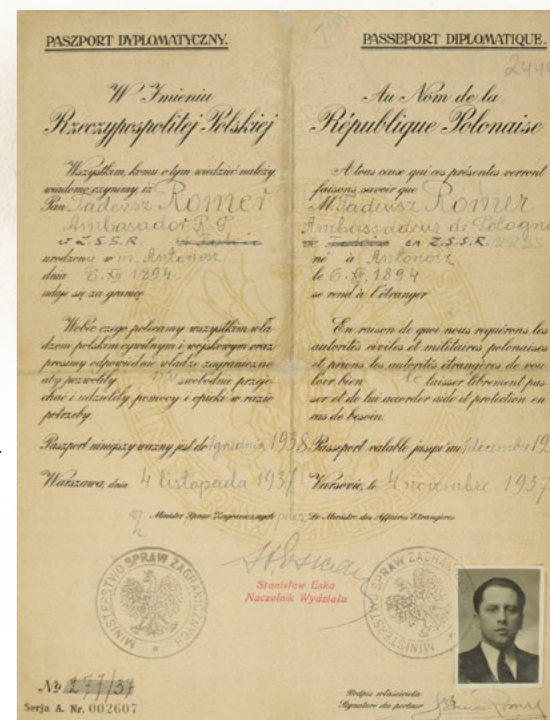 PASZPORT DYPLOMATYCZNY.
W Imieniu
Rzeczypospolitej Polskiej
Wszystkim, komu o tym wiedzieć należy,
wiadomo czynimy iż
Pan Tadeusz Romer
Ambasador R.P.
w Z.S.S.R.
urodzony w m. Antonosz
dnia 6.XII 1894
udaje się za granicę
Wobec czego polecamy wszystkim wła-
dzom polskim cywilnym i wojskowym oraz
prosimy odpowiednie władze zagraniczne
aby pozwoliły swobodnie przeje-
chać i udzieliły pomocy i opieki w razie
potrzeby.
Paszport niniejszy ważny jest do 1 grudnia 1938
Warszawa, dnia 4 listopada 1937
Minister Spraw Zagranicznych
MINISTERSTWO SPRAW ZAGRANICZNYCH
No 277/37
Serja A. Nr. 002607
PASSEPORT DIPLOMATIQUE.
244
Au Nom de la
République Polonaise
A tous ceux qui ces présentes verront
faisons savoir que
M. Tadeusz Romer
Ambassadeur de Pologne
en Z.S.S.R.
né à Antonosz
le 6.XII 1894
se rend à l'étranger
En raison de quoi nous requérons les
autorités civiles et militaires polonaises
et prions les autorités étrangères de vou-
loir bien le laisser librement pas-
ser et de lui accorder aide et protection en
cas de besoin.
Passeport valable jusqu'au 1 décembre 19
Varsovie, le 4 novembre 1937
Le Ministre des Affaires Etrangères
Stanisław Eska
Naczelnik Wydziału
MINISTERSTWO SPRAW ZAGRA
Podpis właściciela
Signature du porteur